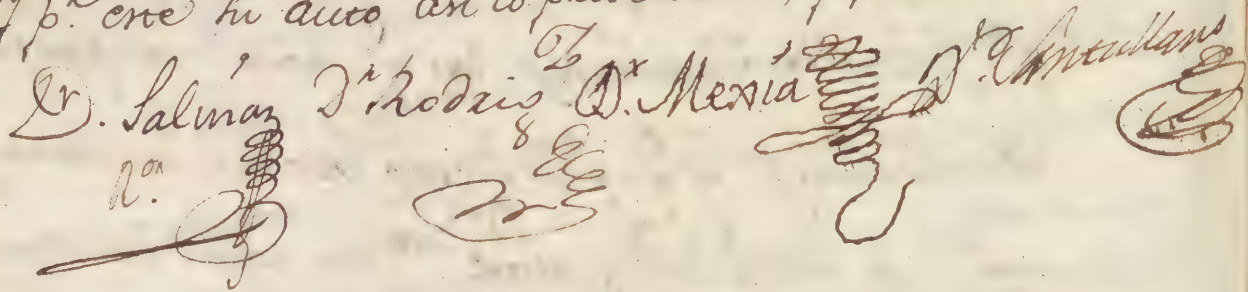 p.r este su auto, asi lo
Dr. Salinas Dr. Rodrig.z Dr. Mexia Dr. Santullano
R.or